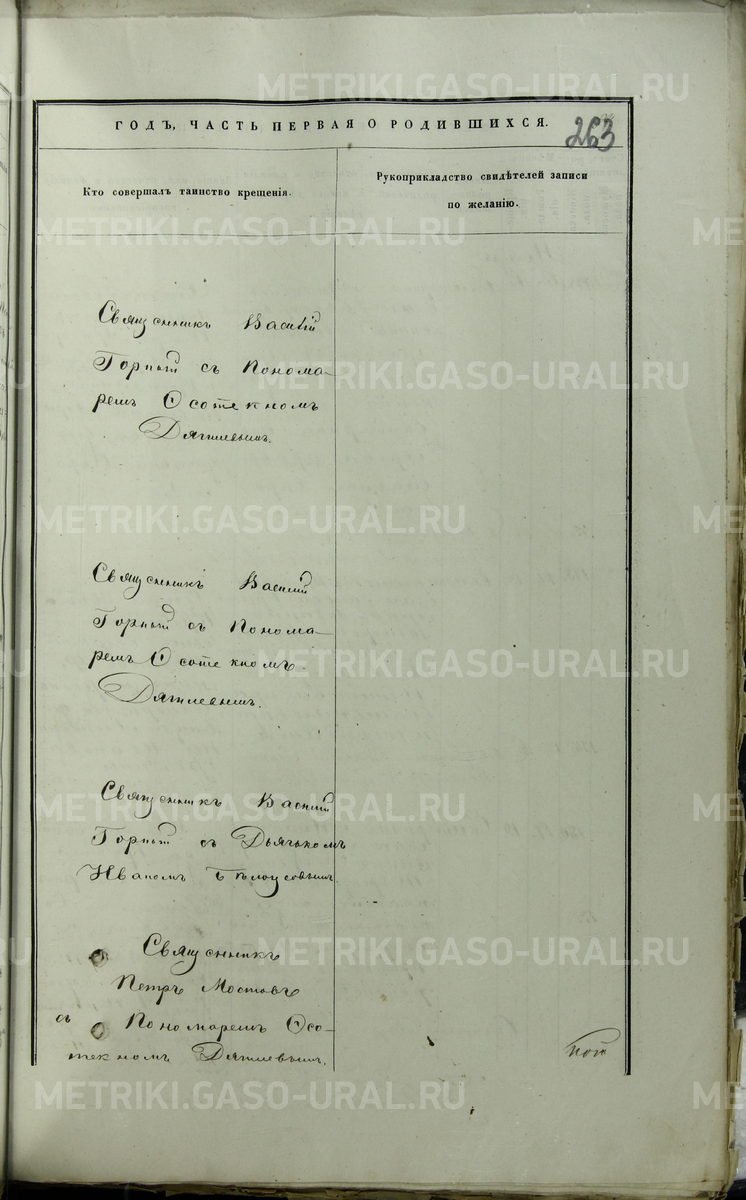 METRIKI.GASO-URAL.RU
ГОДЪ, ЧАСТЬ ПЕРВАЯ О РОДИВШИХСЯ.
263
Кто совершалъ таинство крещенія.
Рукоприкладство свидѣтелей записи
по желанію.
Священникъ Василій
Горныи съ Понома-
ремъ Ѳеотекномъ
Дягилевымъ.
Священникъ Василій
Горныи съ Понома-
ремъ Ѳеотекномъ
Дягилевымъ.
Священникъ Василій
Горныи съ Дьячькомъ
Иваномъ Бѣлоусовымъ
Священникъ
Петръ Мостовъ
съ Пономаремъ Ѳео-
текномъ Дягилевымъ.